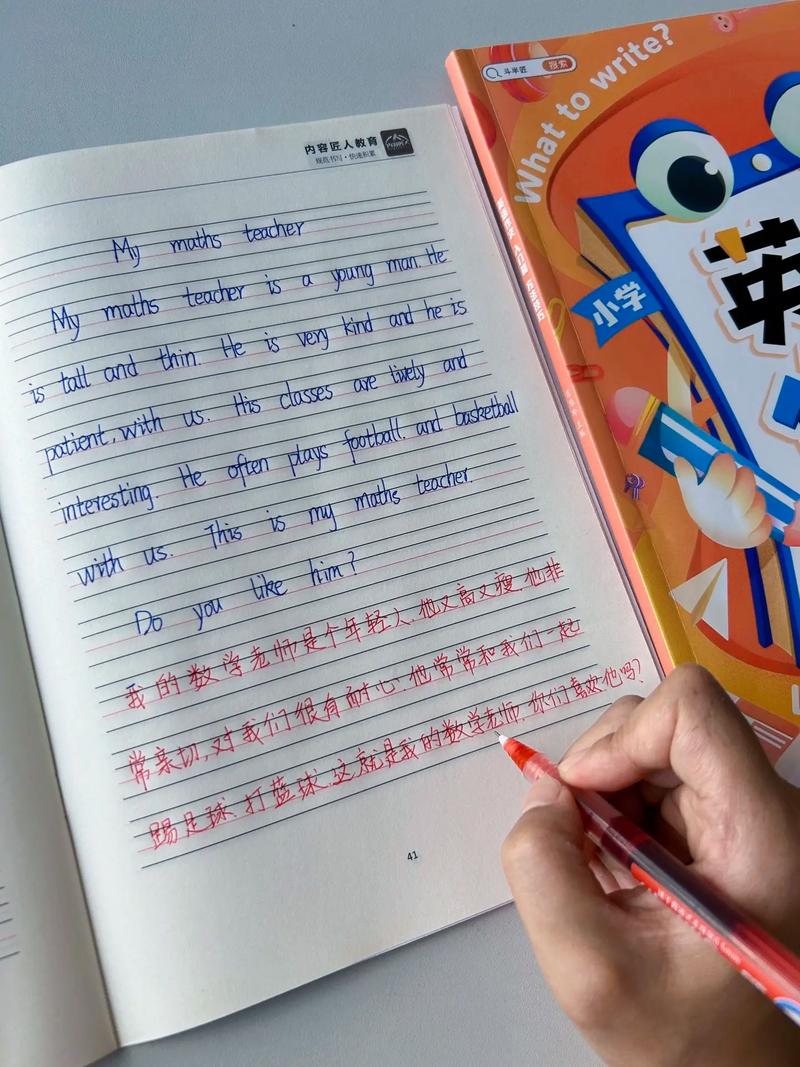 内容匠人教育
规范书写·快速积累
My maths teacher
My maths teacher is a young man. He
is tall and thin. He is very kind and he is
patient, with us. His classes are lively and
interesting. He often plays football. and basketball
with us. This is my maths teacher.
Do you like him?
我的数学老师是个年轻人.他又高又瘦.他非
常亲切,对我们很有耐心.他常常和我们一起
踢足球、打篮球.这就是我的数学老师.你们喜欢他吗?
41
斗半匠 搜索
What to write?
小学
英